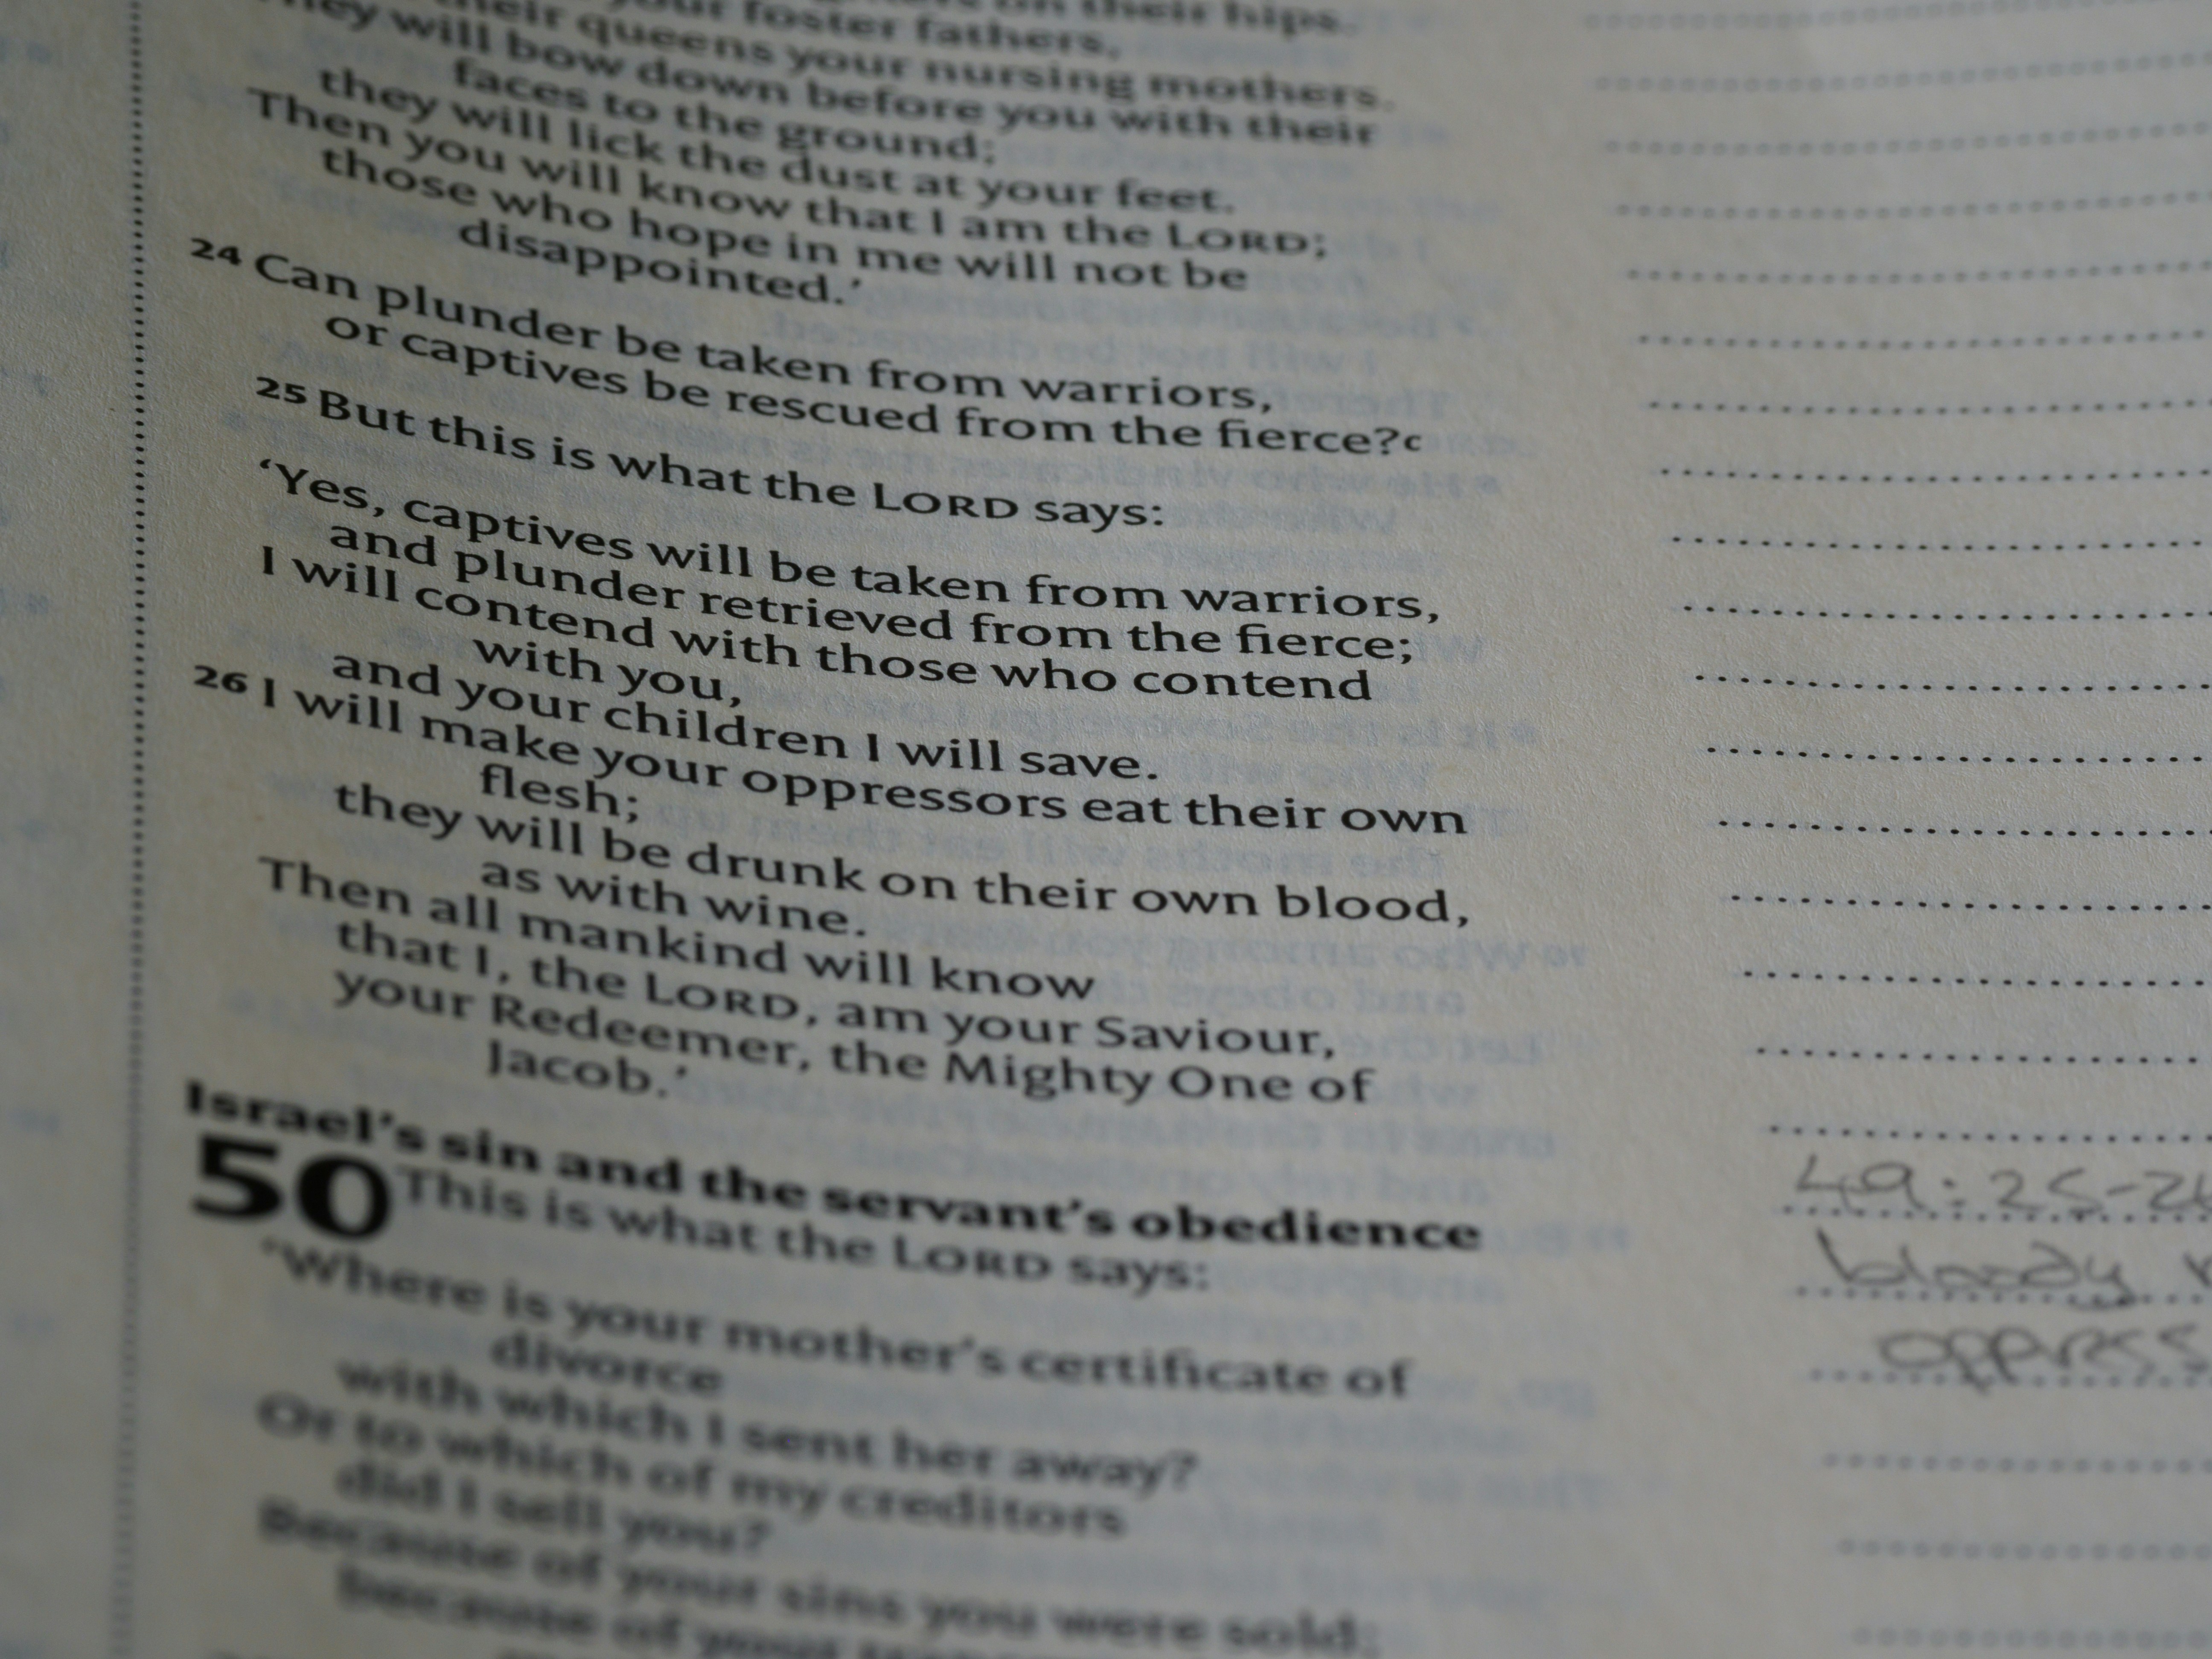 on their hips.
your foster fathers,
their queens your nursing mothers.
They will bow down before you with their
faces to the ground;
they will lick the dust at your feet.
Then you will know that I am the LORD;
those who hope in me will not be
disappointed.’
24 Can plunder be taken from warriors,
or captives be rescued from the fierce?c
25 But this is what the LORD says:
‘Yes, captives will be taken from warriors,
and plunder retrieved from the fierce;
I will contend with those who contend
with you,
and your children I will save.
26 I will make your oppressors eat their own
flesh;
they will be drunk on their own blood,
as with wine.
Then all mankind will know
that I, the LORD, am your Saviour,
your Redeemer, the Mighty One of
Jacob.’
Israel’s sin and the servant’s obedience
50 This is what the LORD says:
‘Where is your mother’s certificate of
divorce
with which I sent her away?
Or to which of my creditors
did I sell you?
Because of your sins you were sold;
because of your
49:25-26
bloody
opprss